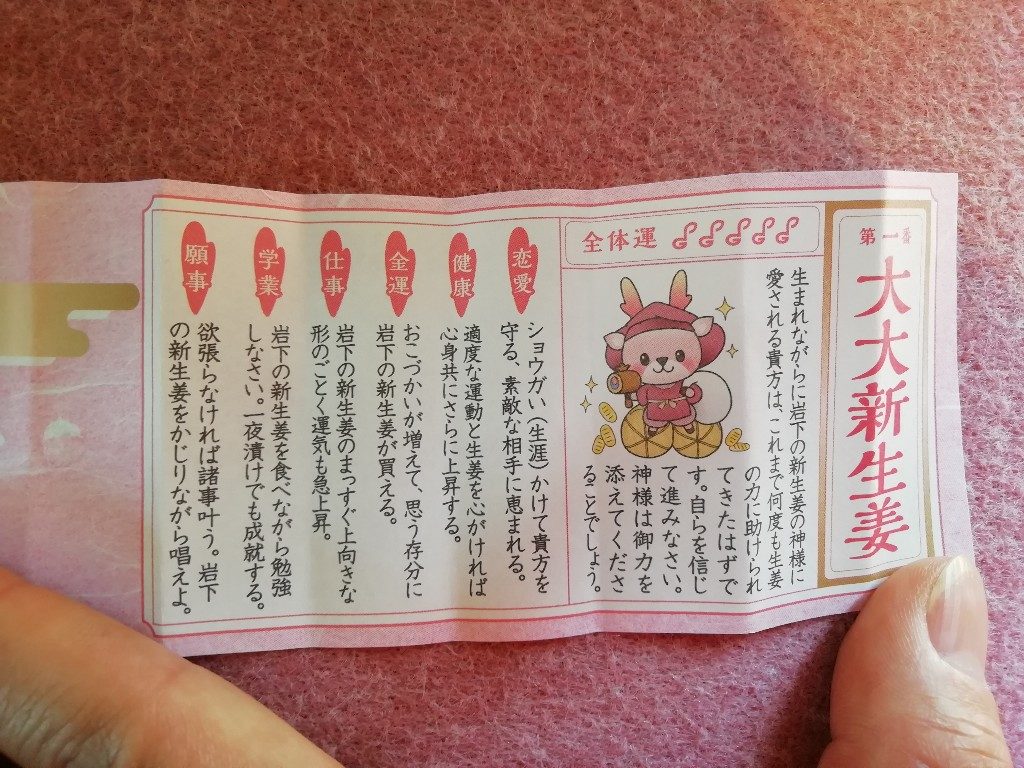 第一番
大大新生姜
全体運
生まれながらに岩下の新生姜の神様に
愛される貴方は、これまで何度も生姜
の力に助けられ
てきたはずで
す。自らを信じ
て進みなさい。
神様は御力を
添えてくださ
ることでしょう。
恋愛
ショウガい（生涯）かけて貴方を
守る、素敵な相手に恵まれる。
健康
適度な運動と生姜を心がければ
心身共にさらに上昇する。
金運
おこづかいが増えて、思う存分に
岩下の新生姜が買える。
仕事
岩下の新生姜のまっすぐ上向きな
形のごとく運気も急上昇。
学業
岩下の新生姜を食べながら勉強
しなさい。一夜漬けでも成就する。
願事
欲張らなければ諸事叶う。岩下
の新生姜をかじりながら唱えよ。